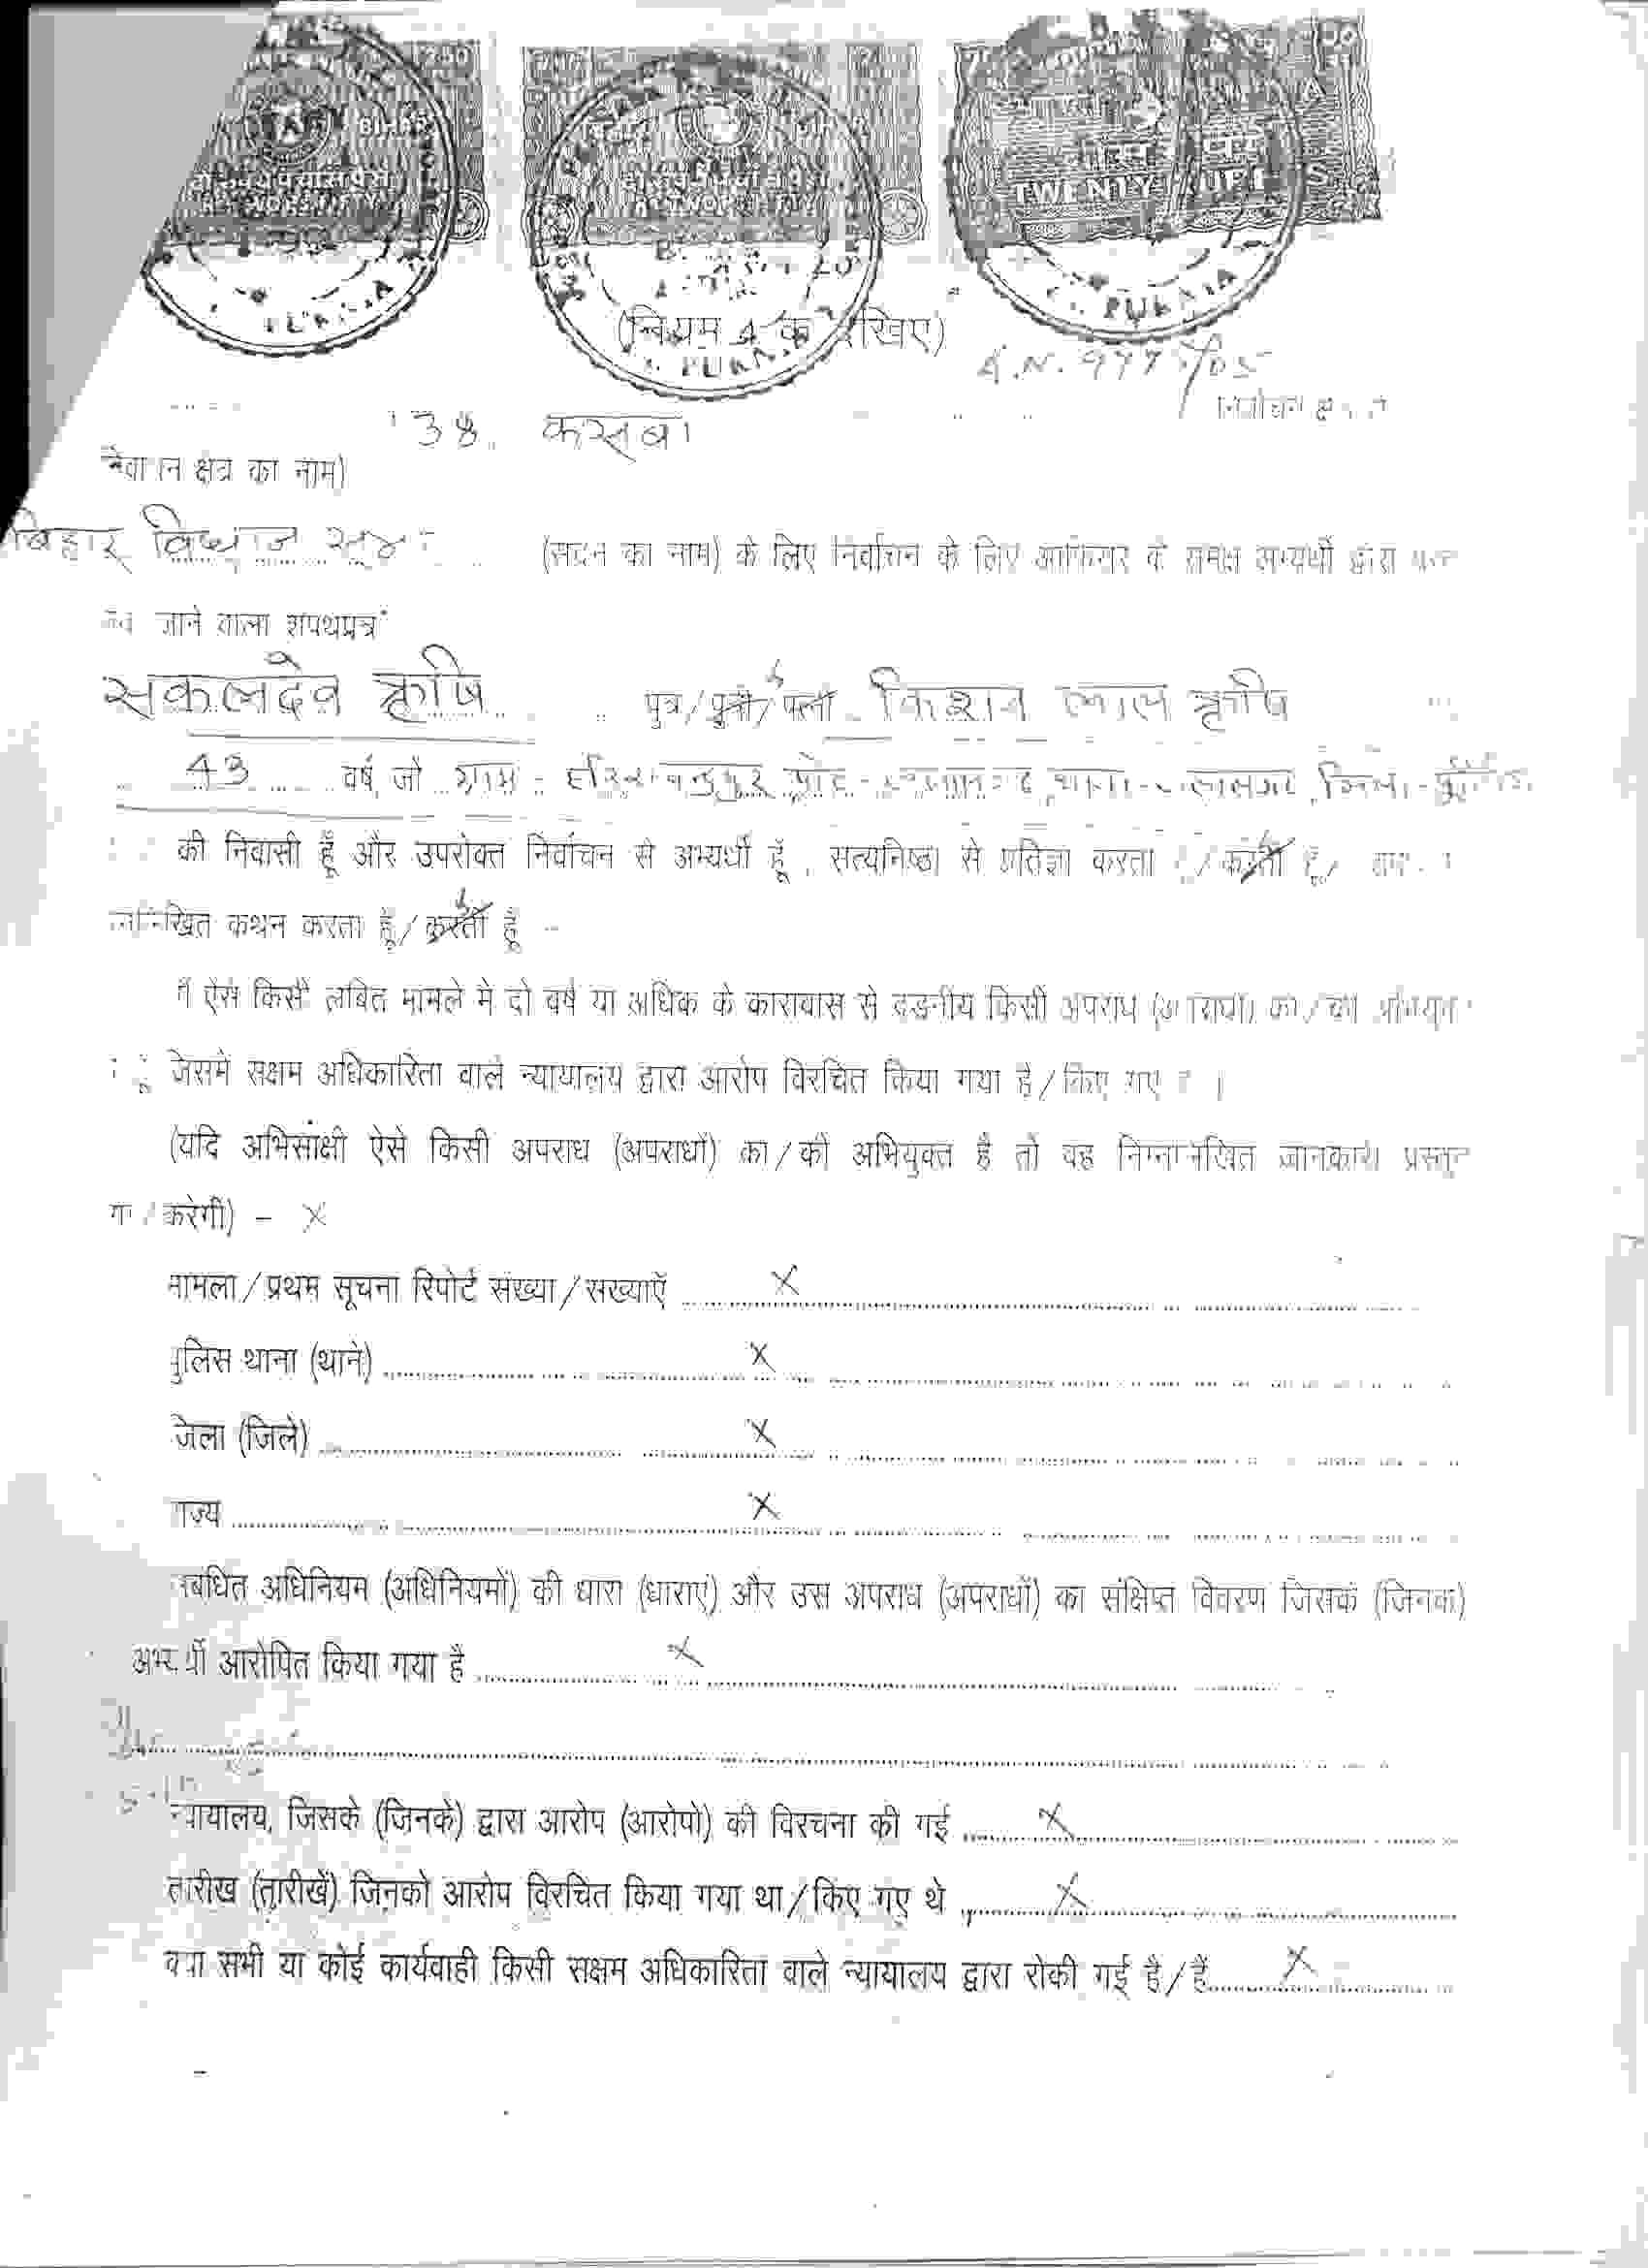 BIHAR
TWENTY RUPEES
PURNIA
(नियम 4 क देखिए)
PURNIA
A.N. 977
138 कसबा
क्षेत्र का नाम)
बिहार विधान सभा (सदन का नाम) के लिए निर्वाचन के लिए आफिसर के समक्ष अभ्यर्थी द्वारा
जाने वाला शपथपत्र
सकलदेव ऋषि पुत्र/पुत्री/पत्नी किशन लाल ऋषि
43 वर्ष जो ग्राम - हरिश्चन्द्रपुर पोस्ट - थाना - जिला -
की निवासी हूँ और उपरोक्त निर्वाचन से अभ्यर्थी हूँ, सत्यनिष्ठा से प्रतिज्ञा करता /करती हूँ/
कथन करता हूँ/करती हूँ -
मैं ऐसे किसी लंबित मामले में दो वर्ष या अधिक के कारावास से दंडनीय किसी अपराध (अपराधों) का/की अभियुक्त
जिसमें सक्षम अधिकारिता वाले न्यायालय द्वारा आरोप विरचित किया गया है/किए गए
(यदि अभिसाक्षी ऐसे किसी अपराध (अपराधों) का/की अभियुक्त है तो वह निम्नलिखित जानकारी प्रस्तुत
करेगी) - X
मामला/प्रथम सूचना रिपोर्ट संख्या/संख्याएँ X
पुलिस थाना (थाने) X
जिला (जिले) X
राज्य X
संबंधित अधिनियम (अधिनियमों) की धारा (धाराएं) और उस अपराध (अपराधों) का संक्षिप्त विवरण जिसके (जिनके)
अभ्यर्थी आरोपित किया गया है X
न्यायालय, जिसके (जिनके) द्वारा आरोप (आरोपों) की विरचना की गई X
तारीख (तारीखें) जिनको आरोप विरचित किया गया था/किए गए थे X
क्या सभी या कोई कार्यवाही किसी सक्षम अधिकारिता वाले न्यायालय द्वारा रोकी गई है/हैं X